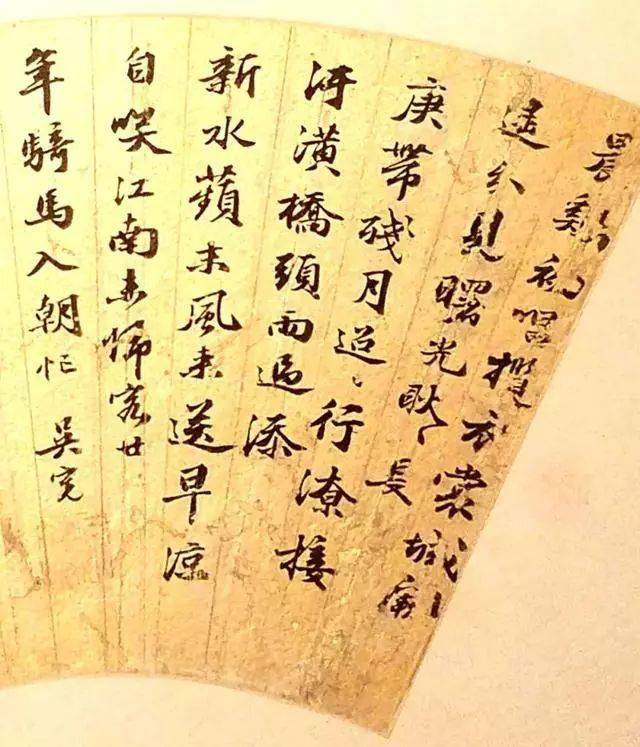 晨雞初唱攬衣裳城
遙分見曙光耿〻長
庚帶殘月迢〻行潦接
河潢橋頭雨過添
新水蘋末風來送早涼
自笑江南未歸客廿
年騎馬入朝忙 吳寬